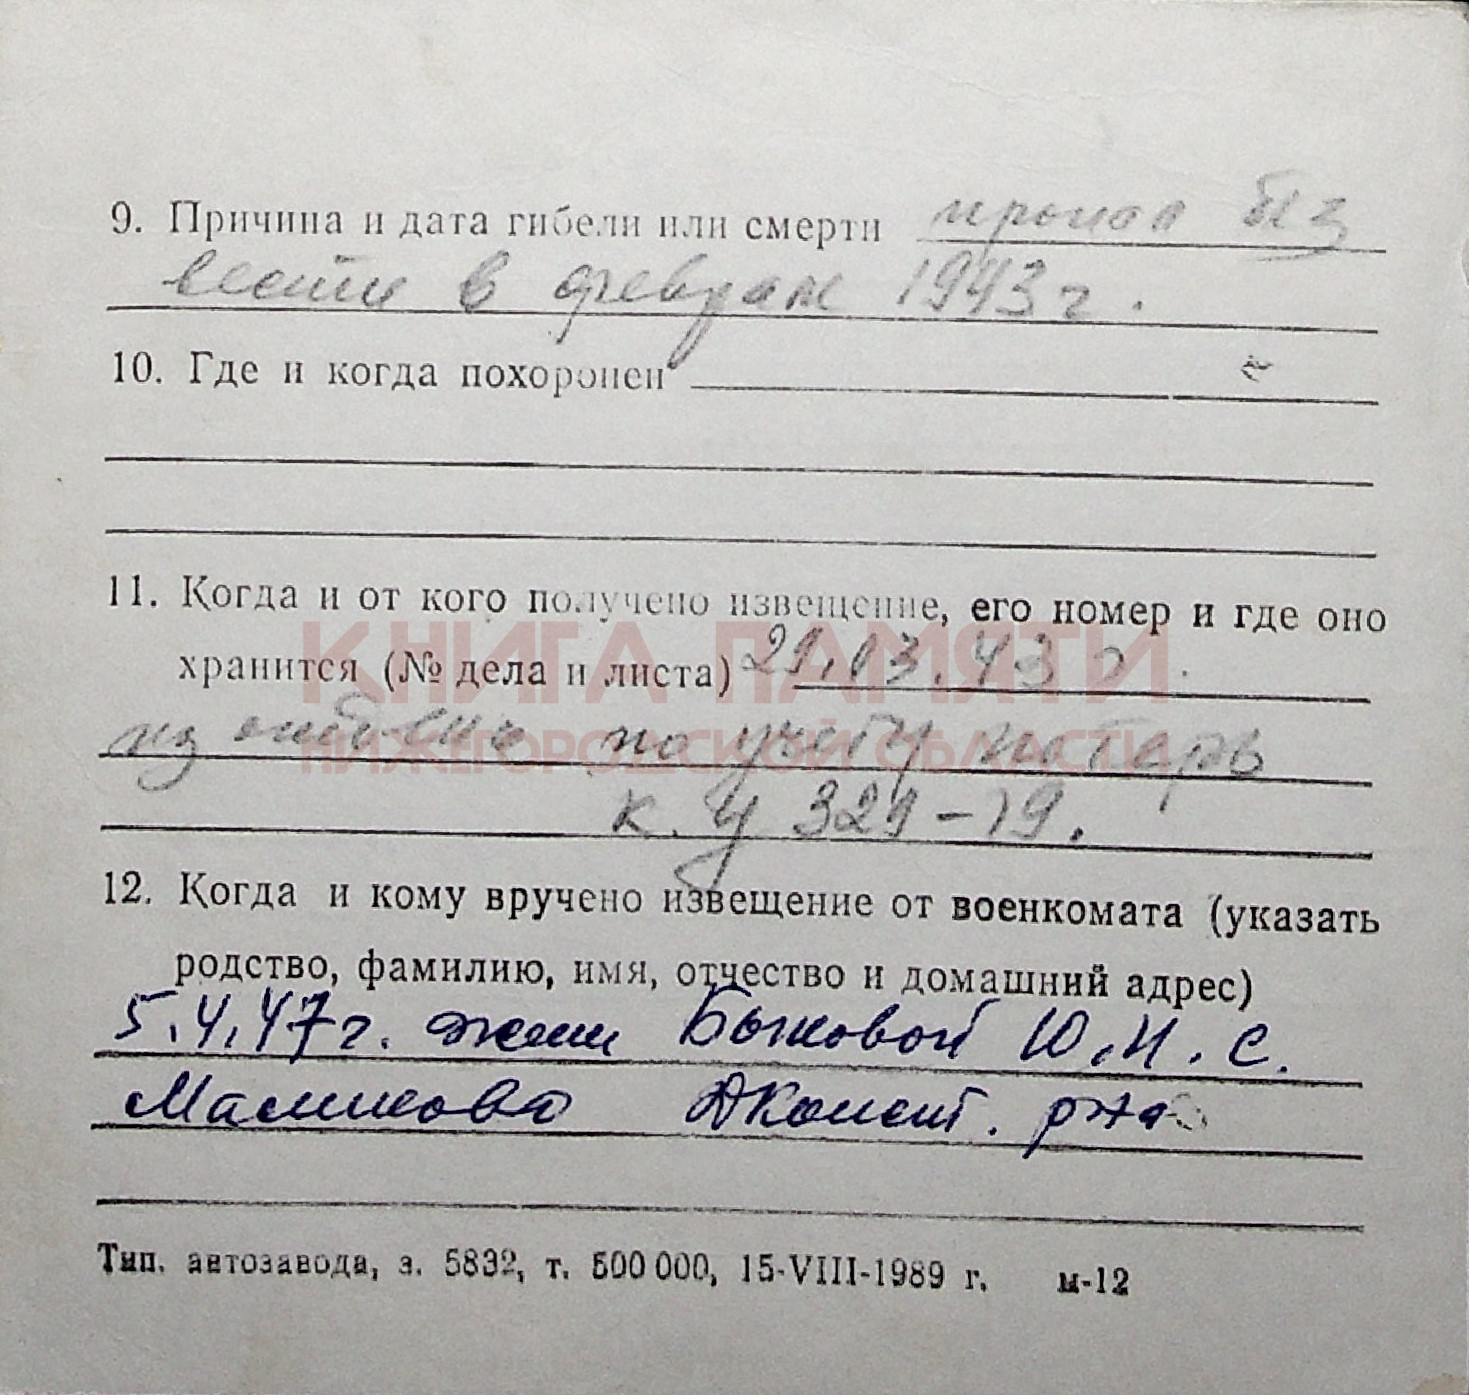 9. Причина и дата гибели или смерти пропал без
вести в феврале 1943 г.
10. Где и когда похоронен
11. Когда и от кого получено извещение, его номер и где оно
КНИГА ПАМЯТИ
хранится (№ дела и листа) 29.03.43 г.
из отдела по учету потерь
НИЖЕГОРОДСКОЙ ОБЛАСТИ
к. у 329-19.
12. Когда и кому вручено извещение от военкомата (указать
родство, фамилию, имя, отчество и домашний адрес)
5.4.47г. жене Быковой Ю.И. с.
Маликово ДКонст. р-на
Тип. автозавода, з. 5832, т. 500 000, 15-VIII-1989 г. м-12